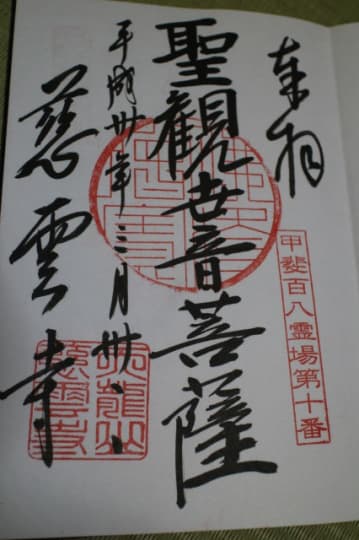 奉拝
甲斐百八霊場第十番
聖観世音菩薩
平成廿年三月廿
慈雲寺
天龍山
慈雲寺